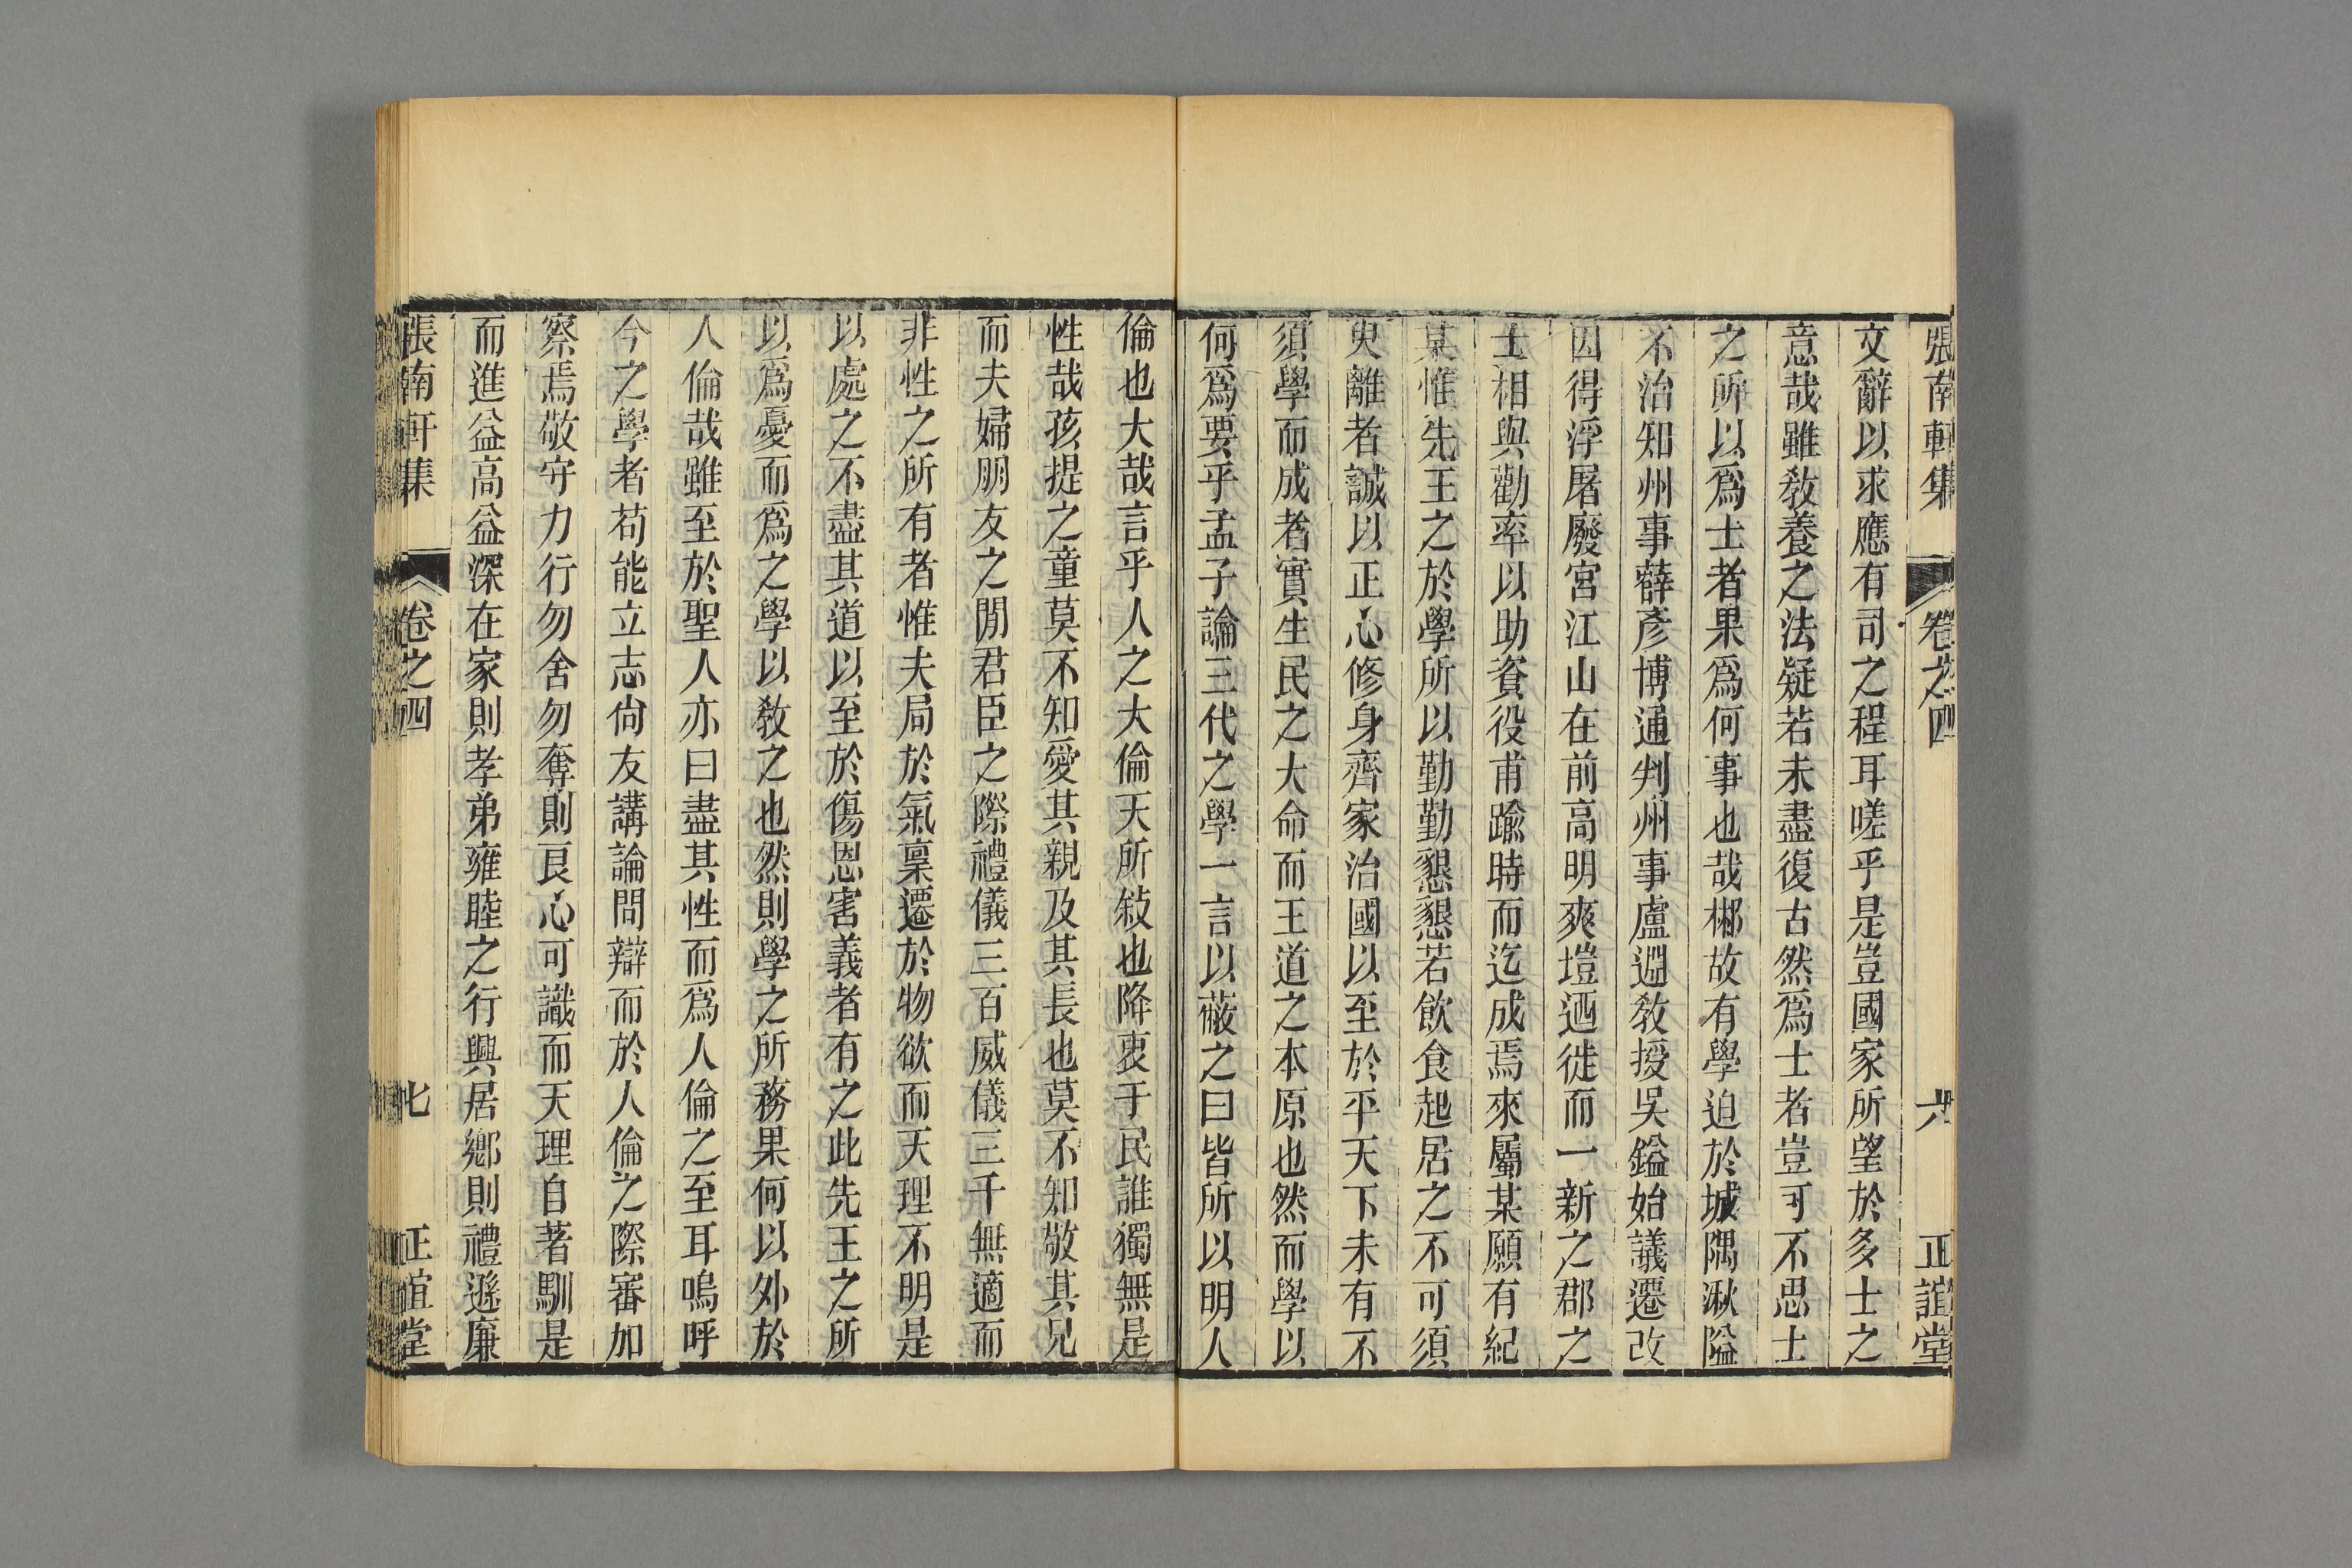 張南軒集 卷之四 六 正誼堂
文辭以求應有司之程耳嗟乎是豈國家所望於多士之
意哉雖敎養之法疑若未盡復古然爲士者豈可不思士
之所以爲士者果爲何事也哉郴故有學迫於城隅湫隘
不治知州事薛彥博通判州事盧㴊敎授吳鎰始議遷改
因得浮屠廢宮江山在前高明爽塏迺徙而一新之郡之
士相與勸率以助貲役甫踰時而迄成焉來屬某願有紀
某惟先王之於學所以勤勤懇懇若飲食起居之不可須
臾離者誠以正心修身齊家治國以至於平天下未有不
須學而成者實生民之大命而王道之本原也然而學以
何爲要乎孟子論三代之學一言以蔽之曰皆所以明人
倫也大哉言乎人之大倫天所敍也降衷于民誰獨無是
性哉孩提之童莫不知愛其親及其長也莫不知敬其兄
而夫婦朋友之閒君臣之際禮儀三百威儀三千無適而
非性之所有者惟夫局於氣稟遷於物欲而天理不明是
以處之不盡其道以至於傷恩害義者有之此先王之所
以爲憂而爲之學以敎之也然則學之所務果何以外於
人倫哉雖至於聖人亦曰盡其性而爲人倫之至耳嗚呼
今之學者苟能立志尙友講論問辯而於人倫之際審加
察焉敬守力行勿舍勿奪則良心可識而天理自著馴是
而進益高益深在家則孝弟雍睦之行興居鄉則禮遜廉
張南軒集 卷之四 七 正誼堂